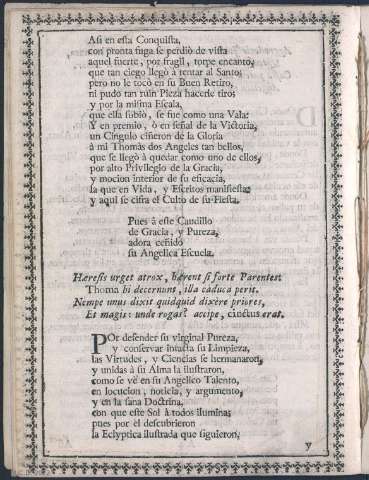 Asi en esta Conquista,
con pronta fuga se perdiò de vista
aquel fuerte, por fragil, torpe encanto,
que tan ciego llegò à tentar al Santo;
pero no le tocò en su Buen Retiro,
ni pudo tan ruin Pieza hacerle tiro;
y por la misma Escala,
que ella subiò, se fue como una Vala:
Y en premio, ò en señal de la Victoria,
un Cingulo ciñeron de la Gloria
à mi Thomàs dos Angeles tan bellos,
que se llegò à quedar como uno de ellos,
por alto Privilegio de la Gracia,
y mocion interior de su eficacia,
la que en Vida, y Escritos manifiesta:
y aqui se cifra el Culto de su Fiesta.
Pues à este Caudillo
de Gracia, y Pureza,
adora ceñido
su Angelica Escuela.
Hæresis urget atrox, hærent si forte Parentes:
Thoma hi decernunt, illa caduca perit.
Nempe unus dixit quidquid dixère priores,
Et magis: unde rogas? accipe, cinctus erat.
POr defender su virginal Pureza,
y conservar intacta su Limpieza,
las Virtudes, y Ciencias se hermanaron,
y unidas à su Alma la ilustraron,
como se vè en su Angelico Talento,
en locucion, noticia, y argumento,
y en la sana Doctrina,
con que este Sol à todos ilumina;
pues por èl descubrieron
la Eclyptica ilustrada que siguieron,
y